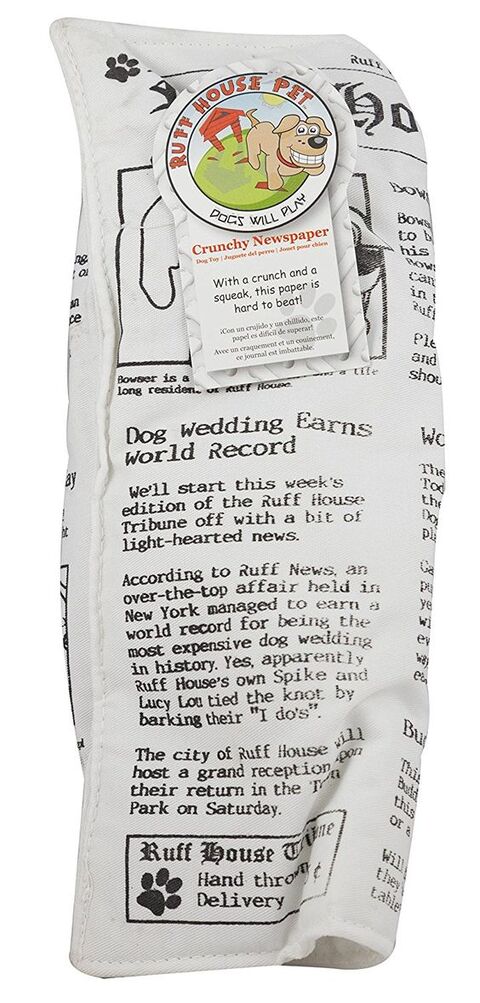 Ruff
RUFF HOUSE PET
DOGS WILL PLAY
Crunchy Newspaper
Dog Toy | Juguete del perro | Jouet pour chien
With a crunch and a
squeak, this paper is
hard to beat!
¡Con un crujido y un chillido, este
papel es difícil de superar!
Avec un craquement et un couinement,
ce journal est imbattable.
Bowser is a
a life
long resident of Ruff House.
Dog Wedding Earns
World Record
We'll start this week's
edition of the Ruff House
Tribune off with a bit of
light-hearted news.
According to Ruff News, an
over-the-top affair held in
New York managed to earn a
world record for being the
most expensive dog wedding
in history. Yes, apparently
Ruff House's own Spike and
Lucy Lou tied the knot by
barking their "I do's".
The city of Ruff House will
host a grand reception upon
their return in the Town
Park on Saturday.
Ruff House Tribune
Hand thrown ¢
Delivery
his
in
and
Wo
The
Tod
the
Dog
or a
Will
they
table